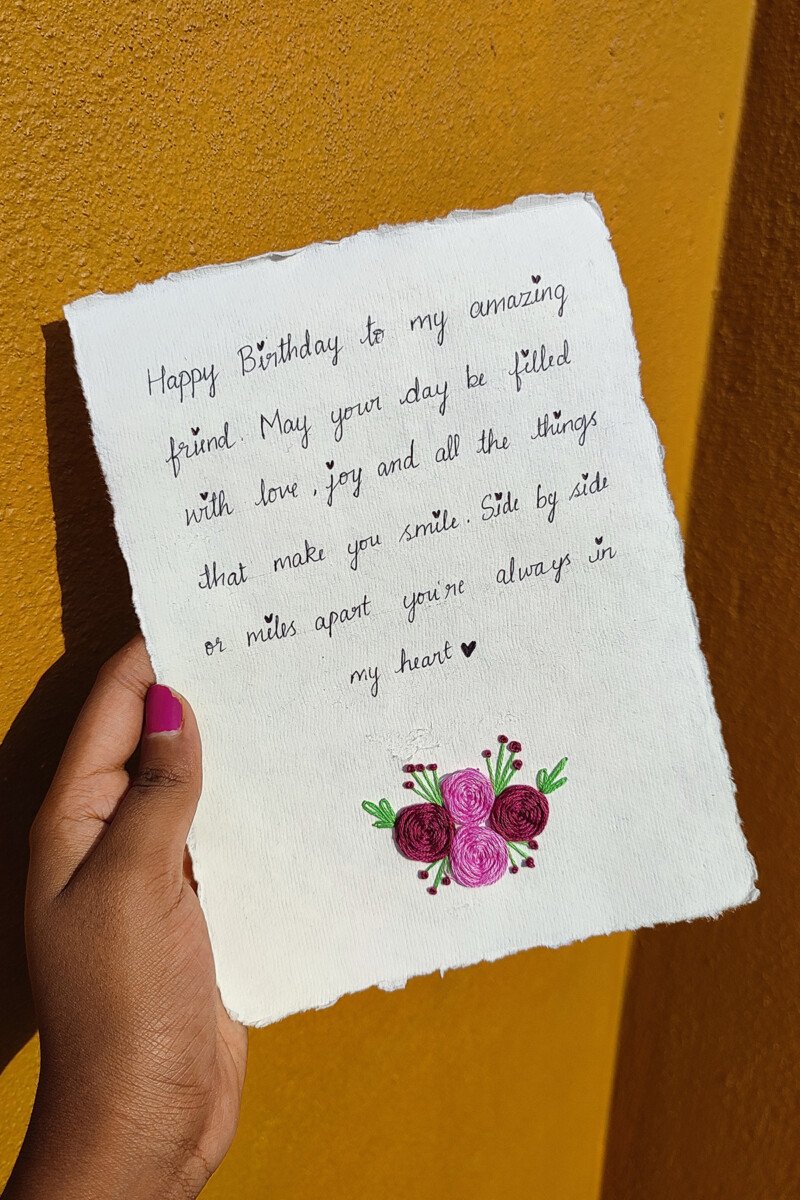 Happy Birthday to my amazing
friend. May your day be filled
with love, joy and all the things
that make you smile. Side by side
or miles apart you're always in
my heart ♥